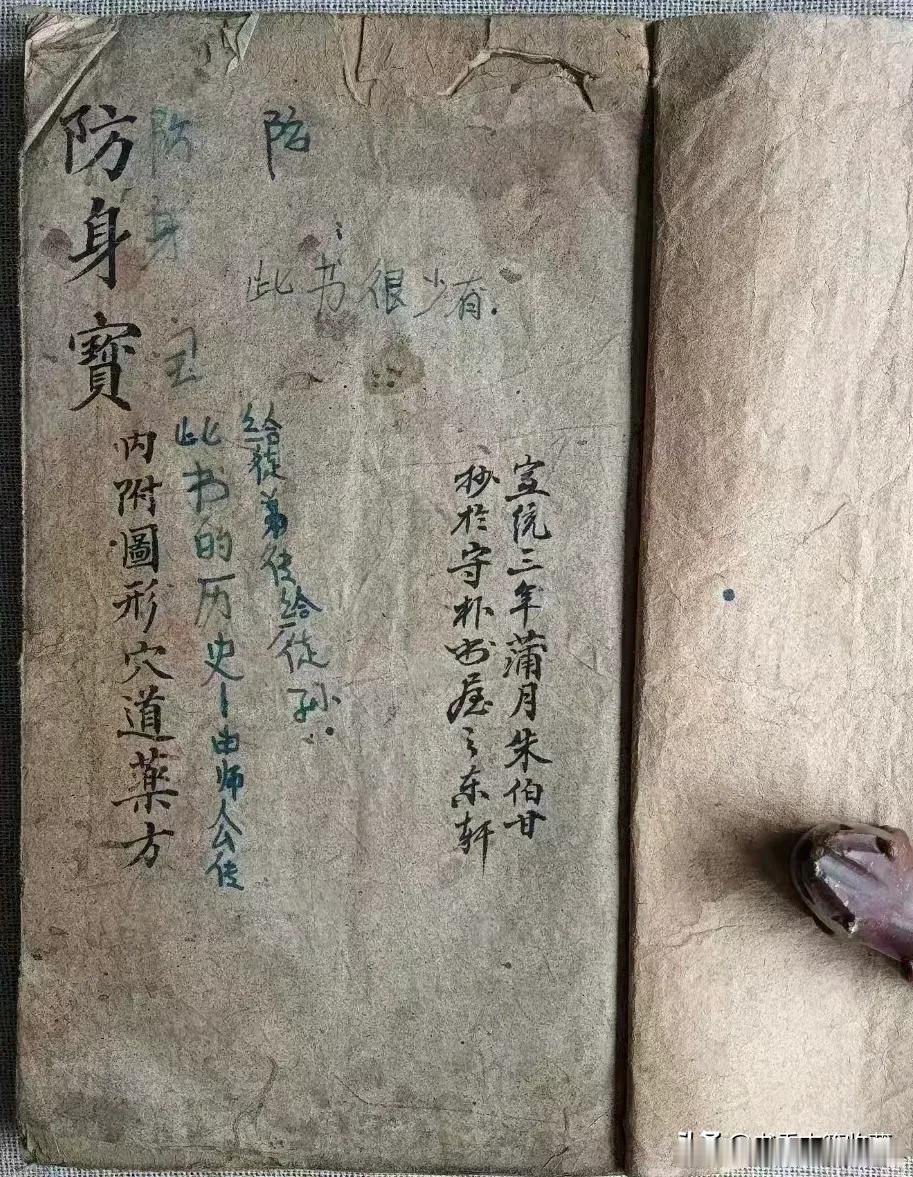 宣统三年蒲月朱伯甘
抄於守朴书屋之东轩
防身寳
内附圖形穴道薬方
防身宝
防
此书很少有.
此书的历史—由师人公传
给徒弟传给徒孙.